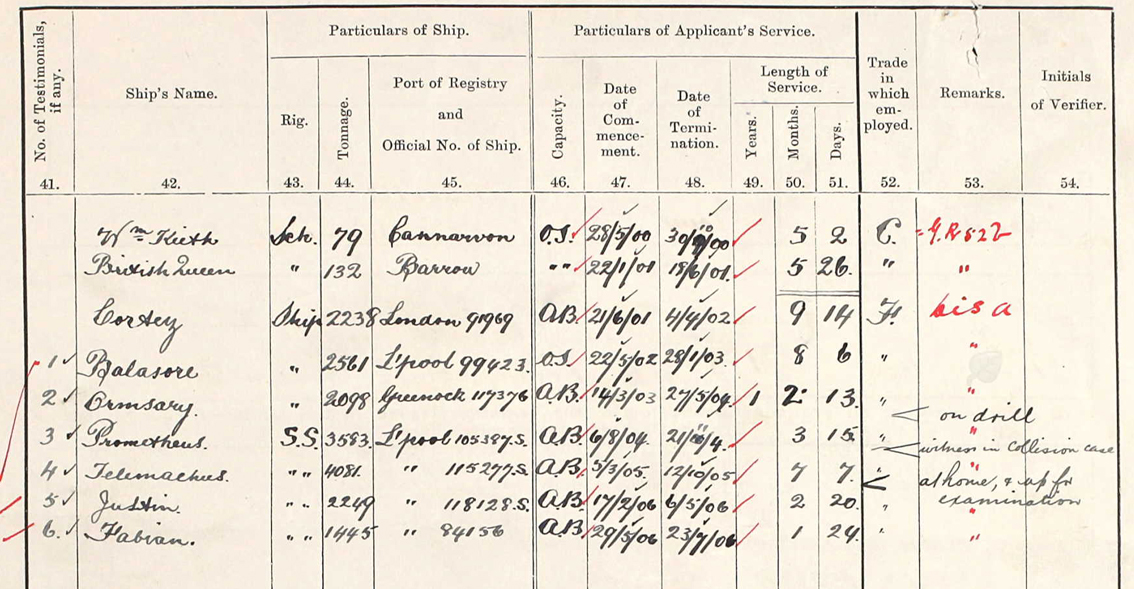 Particulars of Ship. Particulars of Applicant's Service.
No. of Testimonials, if any. Ship's Name. Rig. Tonnage. Port of Registry and Official No. of Ship. Capacity. Date of Commencement. Date of Termination. Length of Service. Years. Months. Days. Trade in which employed. Remarks. Initials of Verifier.
41. 42. 43. 44. 45. 46. 47. 48. 49. 50. 51. 52. 53. 54.
Wm Keith Sch. 79 Carnarvon O.S. 28/5/00 5 2 C.
British Queen " 132 Barrow " " 22/1/01 18/6/01 5 26. " "
Cortez Ship 2238 London 91969 A.B. 21/6/01 4/4/02 9 14 F. bis a
1 Balasore " 2561 L'pool 99423. O.S. 22/5/02 28/1/03 8 6 " "
2 Ormsary. " 2098 Greenock 117376 A.B. 14/3/03 27/5/04. 1 2 13. " "
< on drill
3 Prometheus. S.S. 3583. L'pool 105387.S. A.B. 6/8/04. 3 15. " "
< witness in Collision case
4 Telemachus. " " 4081. " 115277.S. A.B. 5/3/05. 12/10/05 7 7. " "
< at home, & up for examination
5 Justin. " " 2249 " 118128.S. A.B. 17/2/06 6/5/06 2 20. " "
6. Fabian. " " 1445 " 84156 A.B. 29/5/06 23/7/06 1 24. " "